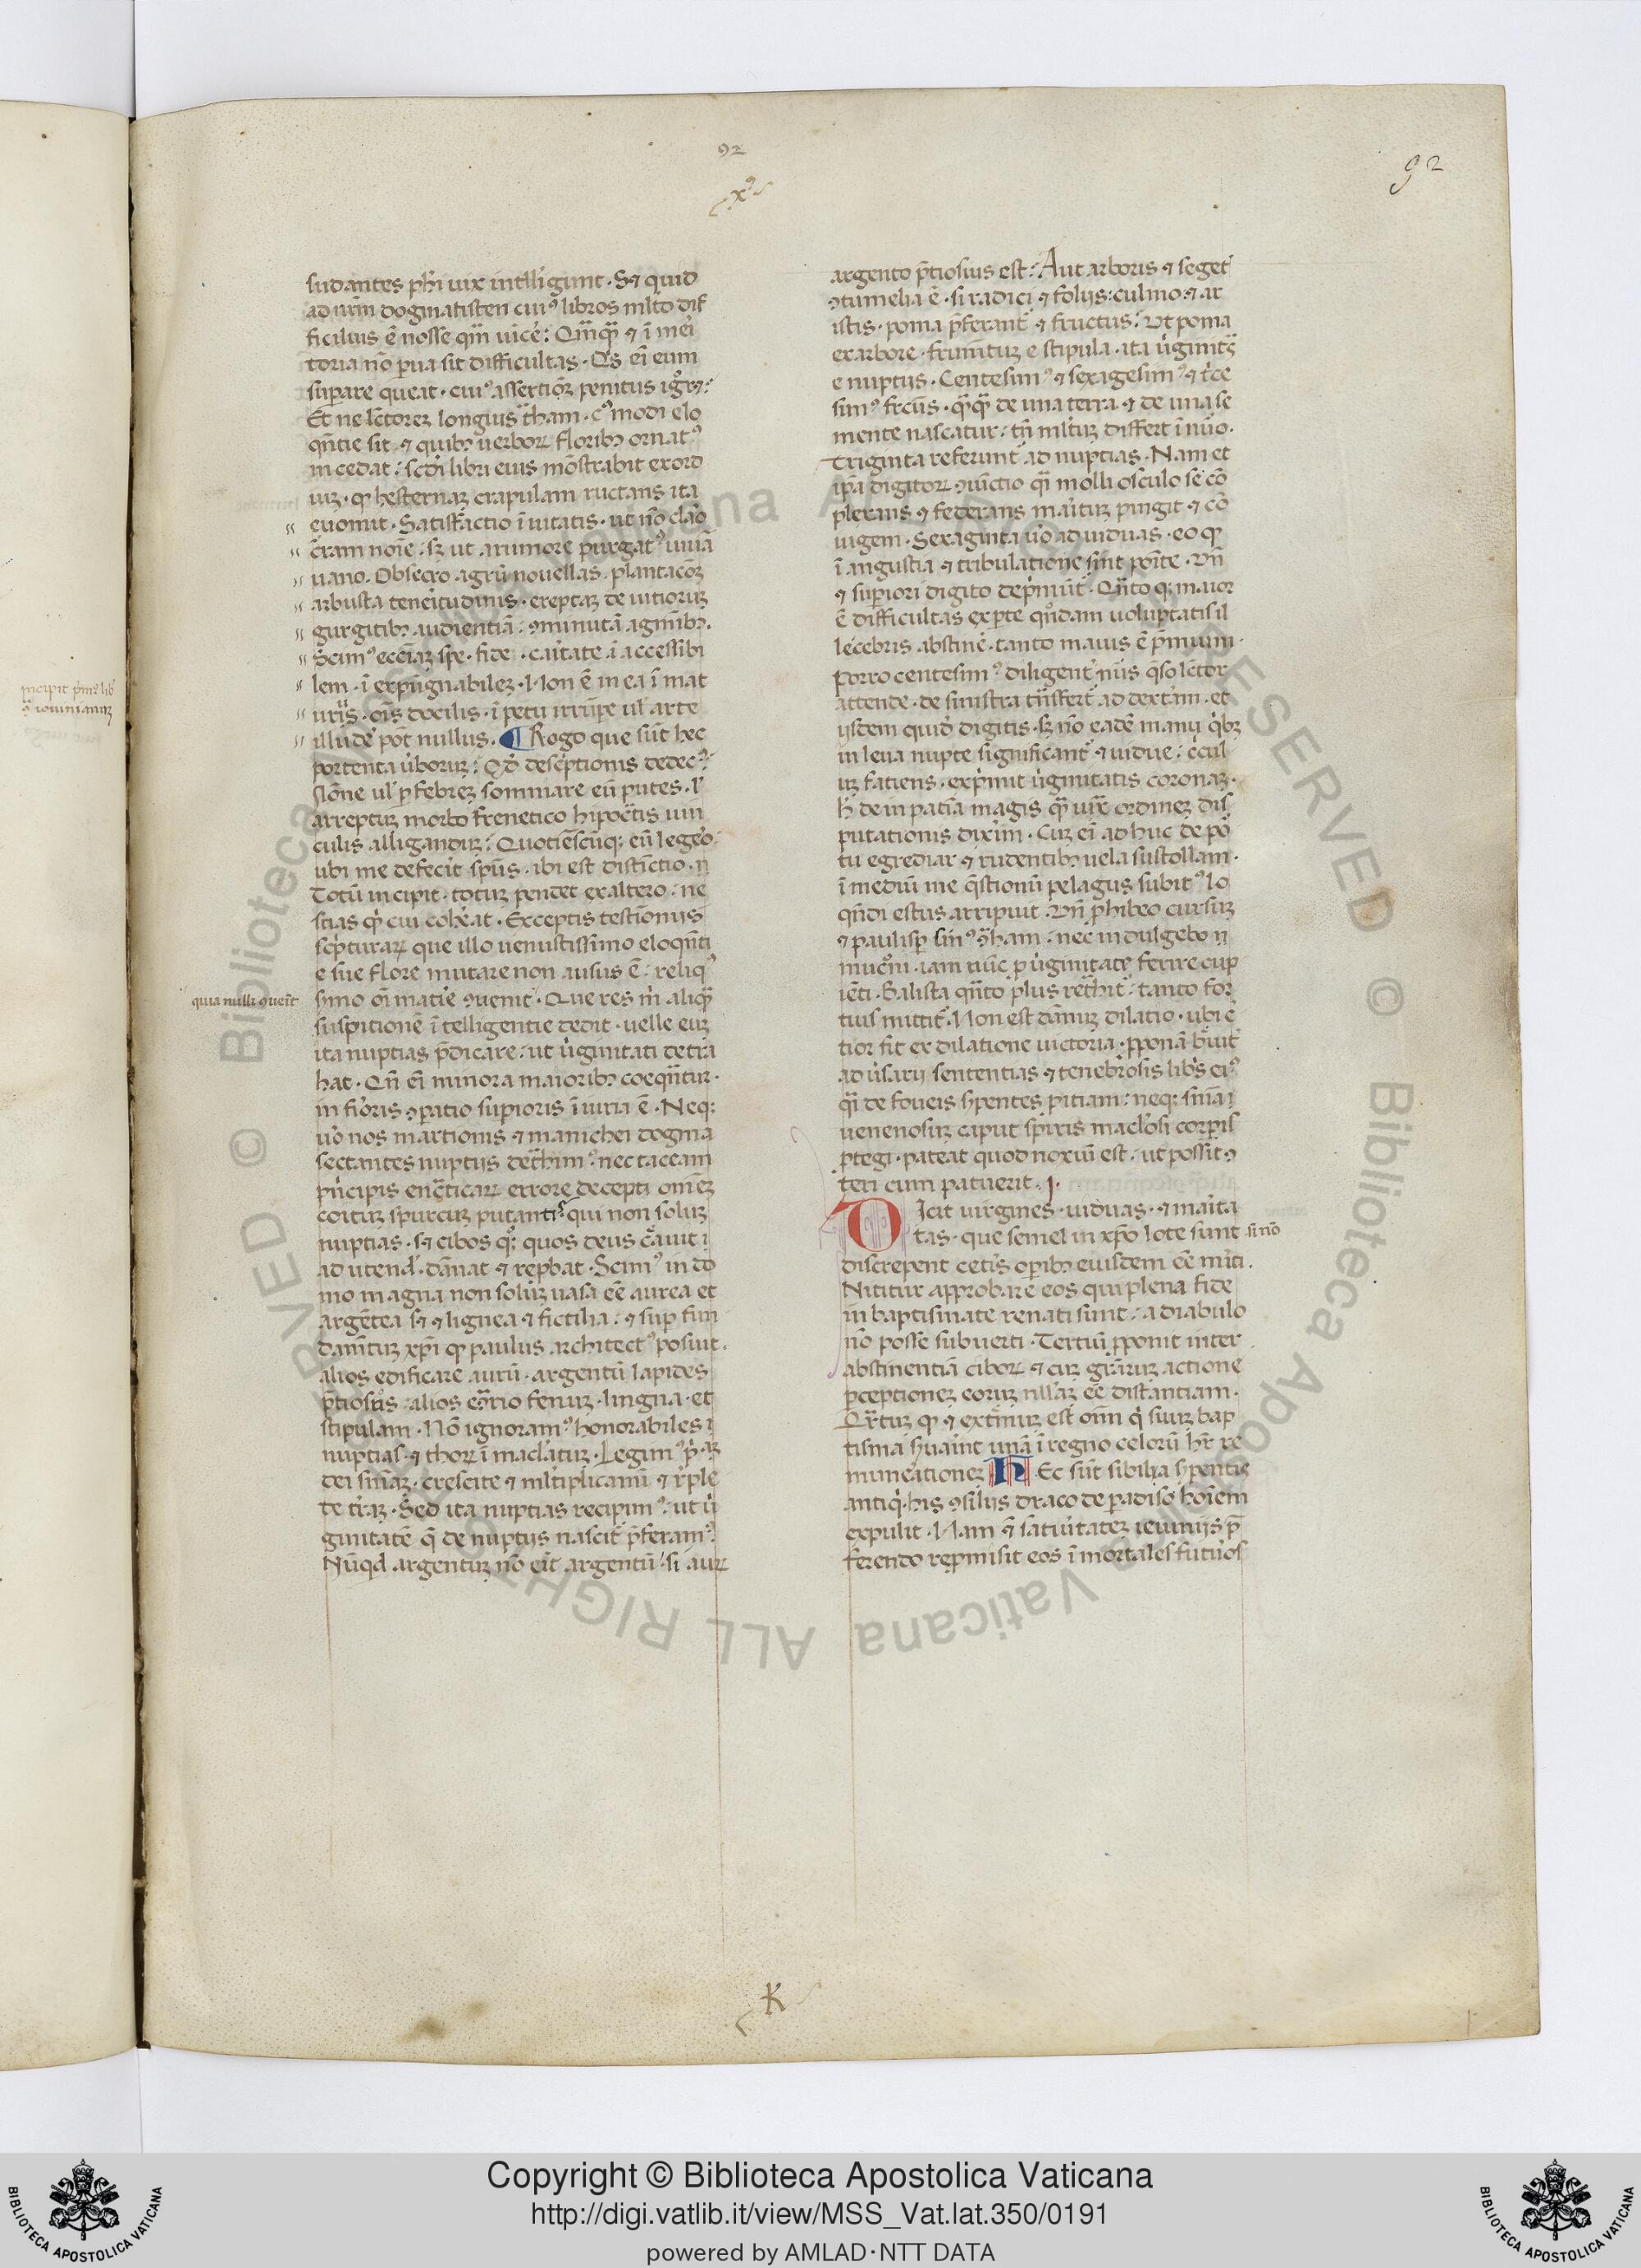 92
92
sudantes phi uix intelligunt · Sꝫ quid
ad urm dogmatisten cui⁹ libros mlto dif
ficilius ē nosse qm uice :
toria nō pua sit difficultas · Qs eī eum
supare queat · cui⁹ assertiōꝫ penitus
Et ne lectorez longius
qntie sit · ⁊ quibꝫ uerboꝝ floribꝫ ornat⁹
incedat : scdi libri eius mōstrabit exord
iuꝫ · q hesternaꝫ crapulam ructans ita
euomit · Satisfactio īuitatis · ut nō claro
uano · Obsecro agrū nouellas · plantacōꝫ
arbusta teneritudinis · ereptaꝫ de uitioruꝫ
gurgitibꝫ audientiā : ꝯmunitā agmībꝫ ·
Scim⁹ eccīaꝫ spe · fide · caitate ī accessibi
lem · ī expugnabilez · Non ē in ea ī mat
urus · ois docilis · ī petu irrūpe ul arte
illude pōt nullus · ¶ Rogo que sūt hec
portenta
siōne ul p febrez somniare eū putes · l
arreptuꝫ morbo frenetico hipocatis uin
culis alligandū : Quotiēscūqꝫ eū legeo
ubi me defecit spūs · ibi est distīctio ·
Totū incipit · totuꝫ pendet exaltero : ne
scias qd cui cohereat · Exceptis testīoniis
scpturaꝝ que illo uenustissimo eloqnti
e sue flore mutare non ausus ē : reliq⁹
smo oi matie ꝯuenit · Que res m aliqm
suspitionē ītelligentie dedit · uelle euꝫ
ita nuptias pdicare : ut uginitati detra
hat · Qn eī minora maioribꝫ coequātur ·
inferioris ꝯpatio supioris īuria ē · Neqꝫ
uo nos martionis ⁊ manichei dogma
sectantes nuptiis dethim⁹ : nec taceam
pncipis encaticaꝝ errore decepti omēz
coituꝫ spurcuꝫ putant⁹ qui non soluꝫ
nuptias · sꝫ cibos qꝫ quos deus cauit ī
ad utend · dānat ⁊ repbat · Scim⁹ in do
mo magna non soluꝫ uasa eē aurea et
argētea sꝫ ⁊ lignea ⁊ fictilia : ⁊ sup fun
damtuꝫ xpi q paulus architect⁹ posuit ·
alios edificare aurū · argentū lapides
ptiosos : alios eōrio fenuꝫ · lingna · et
stipulam · Nō ignoram⁹ honorabiles ī
nuptias · ⁊ thoꝝ īmaclatuꝫ · Legim⁹ p̄
dei smāꝫ · crescite ⁊ mltiplicamī ⁊ reple
te traꝫ · Sed ita nuptias recipim⁹ : ut u
ginitatē q de nuptiis nascit pferam⁹ :
Nūqd argentuꝫ nō eit argentū : si auꝝ
quia nulli ꝯueīt
argento ptiosius est : Aut arboris ⁊ seget
ꝯtumelia ē · si radici ⁊ foliis : culmo ⁊ ar
istis · poma pferant ⁊ fructus : Ut poma
ex arbore · frumtuꝫ e stipula · ita uginitas
e nuptiis · Centesim⁹ ⁊ sexagesim⁹ ⁊ tce
sim⁹ frcus · qqm de una terra ⁊ de una se
mente nascatur : tn mltuꝫ differt ī nuo ·
Triginta referunt ad nuptias · Nam et
ipa digitoꝝ ꝯiūctio qi molli osculo se cō
plexans ⁊ federans maituꝫ pingit ⁊ cō
iugem · Sexaginta uo ad uiduas · eo q
ī angustia ⁊ tribulatione sint poīte · Un
⁊ superiori digito depmūt · Qnto qꝫ maior
ē difficultas expte qndam uoluptatis il
lecebris abstine · tanto maius ē pmium ·
Porro centesim⁹ · diligent nus qso lector
attende · de sinistra tnsfert ad dextam · et
iisdem quid digitis · sꝫ nō eadē manu qbꝫ
in leua nupte significant ⁊ uidue : ccul
uꝫ fatiens · expmit uginitatis coronaꝫ ·
h de inpatia magis qm iuxta ordinez dis
putationis dixim · Cuꝫ eī ad huc de po
tu egrediar ⁊ rudentibꝫ uela sustollam ·
ī mediū me qstionū pelagus subit⁹ lo
qndi estus arripuit · Un phibeo cursuꝫ
⁊ paulisp sin⁹ ꝯtham : nec indulgebo
mucōni · iam tūc p uginitate ferire cup
iēti · Balista qnto plus rethit : tanto for
tius mittit · Non est damnuꝫ dilatio · ubi c
tior fit ex dilatione uictoria · pponā buit
aduisarii sententias ⁊ tenebrosis libis ei⁹
qi de foueis spentes ptiam : neqꝫ sinā ī
uenenosuꝫ caput spiris maclosi corpis
ptegi · pateat quod noxiū est : ut possit ꝯ
teri cum patuerit · j ·
Dicit uirgines · uiduas · ⁊ maita
tas · que semel in xpo lote sunt si nō
discrepent cetis opibꝫ eiusdem eē miti ·
Nititur approbare eos qui plena fide
in baptismate renati sunt : a diabulo
nō posse subuerti · Tertiū pponit inter
abstinentiā ciboꝝ ⁊ cuꝫ gratiaꝝ actione
pceptionez eoruꝫ nllaꝫ eē distantiam ·
Qrtuꝫ q ⁊ extmuꝫ est oīm q suuꝫ bap
tisma suaint unā ī regno celorū hr re
muneationez Hec sūt sibilia spentis
antiq · his ꝯsiliis draco de padiso hoiem
expulit · Nam ⁊ saturitatez ieiuniis p
ferendo repmisit eos īmortales futuros
K
Copyright © Biblioteca Apostolica Vaticana
http://digi.vatlib.it/view/MSS_Vat.lat.350/0191
powered by AMLAD·NTT DATA
BIBLIOTECA APOSTOLICA VATICANA
BIBLIOTECA APOSTOLICA VATICANA